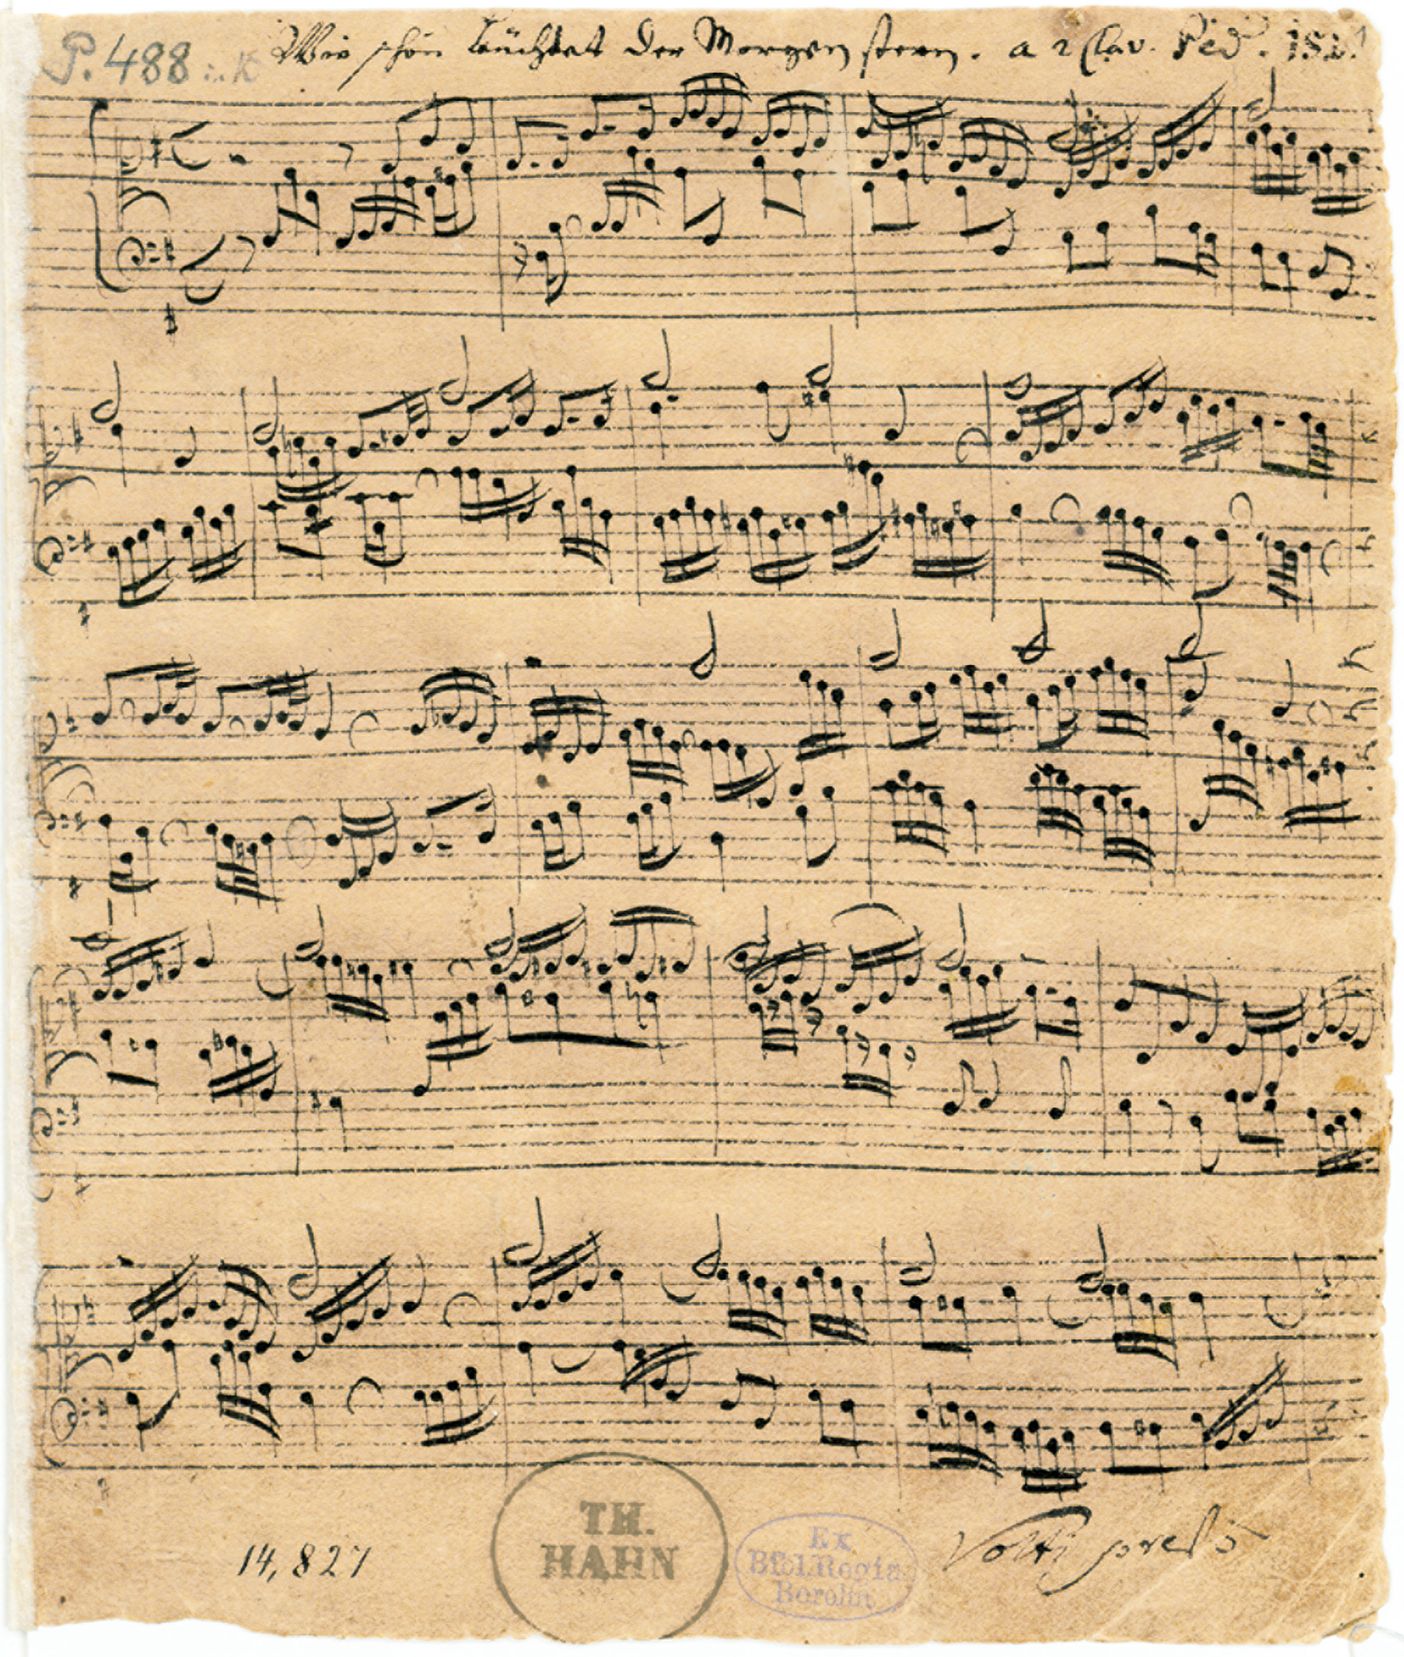 P. 488
Wie schön leüchtet der Morgen stern. a 2 Clav. Ped.
14,827
TH.
HAHN
Ex
Bibl. Regia
Berolin
Volti presto